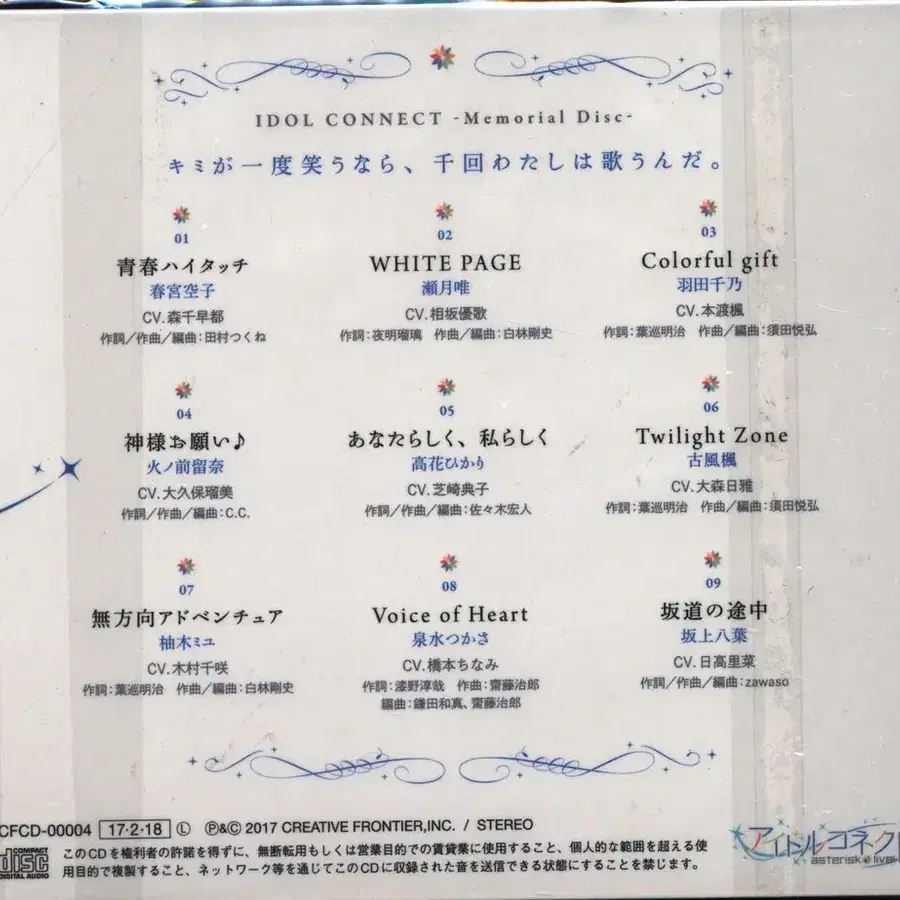 IDOL CONNECT -Memorial Disc-
キミが一度笑うなら、千回わたしは歌うんだ。
01
青春ハイタッチ
春宮空子
CV.森千早都
作詞/作曲/編曲:田村つくね
02
WHITE PAGE
瀬月唯
CV.相坂優歌
作詞:夜明瑠璃 作曲/編曲:白林剛史
03
Colorful gift
羽田千乃
CV.本渡楓
作詞:葉巡明治 作曲/編曲:須田悦弘
04
神様お願い♪
火ノ前留奈
CV.大久保瑠美
作詞/作曲/編曲:C.C.
05
あなたらしく、私らしく
高花ひかり
CV.芝崎典子
作詞/作曲/編曲:佐々木宏人
06
Twilight Zone
古風楓
CV.大森日雅
作詞:葉巡明治 作曲/編曲:須田悦弘
07
無方向アドベンチュア
柚木ミユ
CV.木村千咲
作詞:葉巡明治 作曲/編曲:白林剛史
08
Voice of Heart
泉水つかさ
CV.橋本ちなみ
作詞:漆野淳哉 作曲:齋藤治郎
編曲:鎌田和真、齋藤治郎
09
坂道の途中
坂上八葉
CV.日高里菜
作詞/作曲/編曲:zawaso
CFCD-00004 17・2・18 Ⓛ Ⓟ&© 2017 CREATIVE FRONTIER,INC. / STEREO
COMPACT
disc
DIGITAL AUDIO
このCDを権利者の許諾を得ずに、無断転用もしくは営業目的での賃貸業に使用すること、個人的な範囲を超える使
用目的で複製すること、ネットワーク等を通じてこのCDに収録された音を送信できる状態にすることを禁じます。
アイドルコネクト
asterisk live